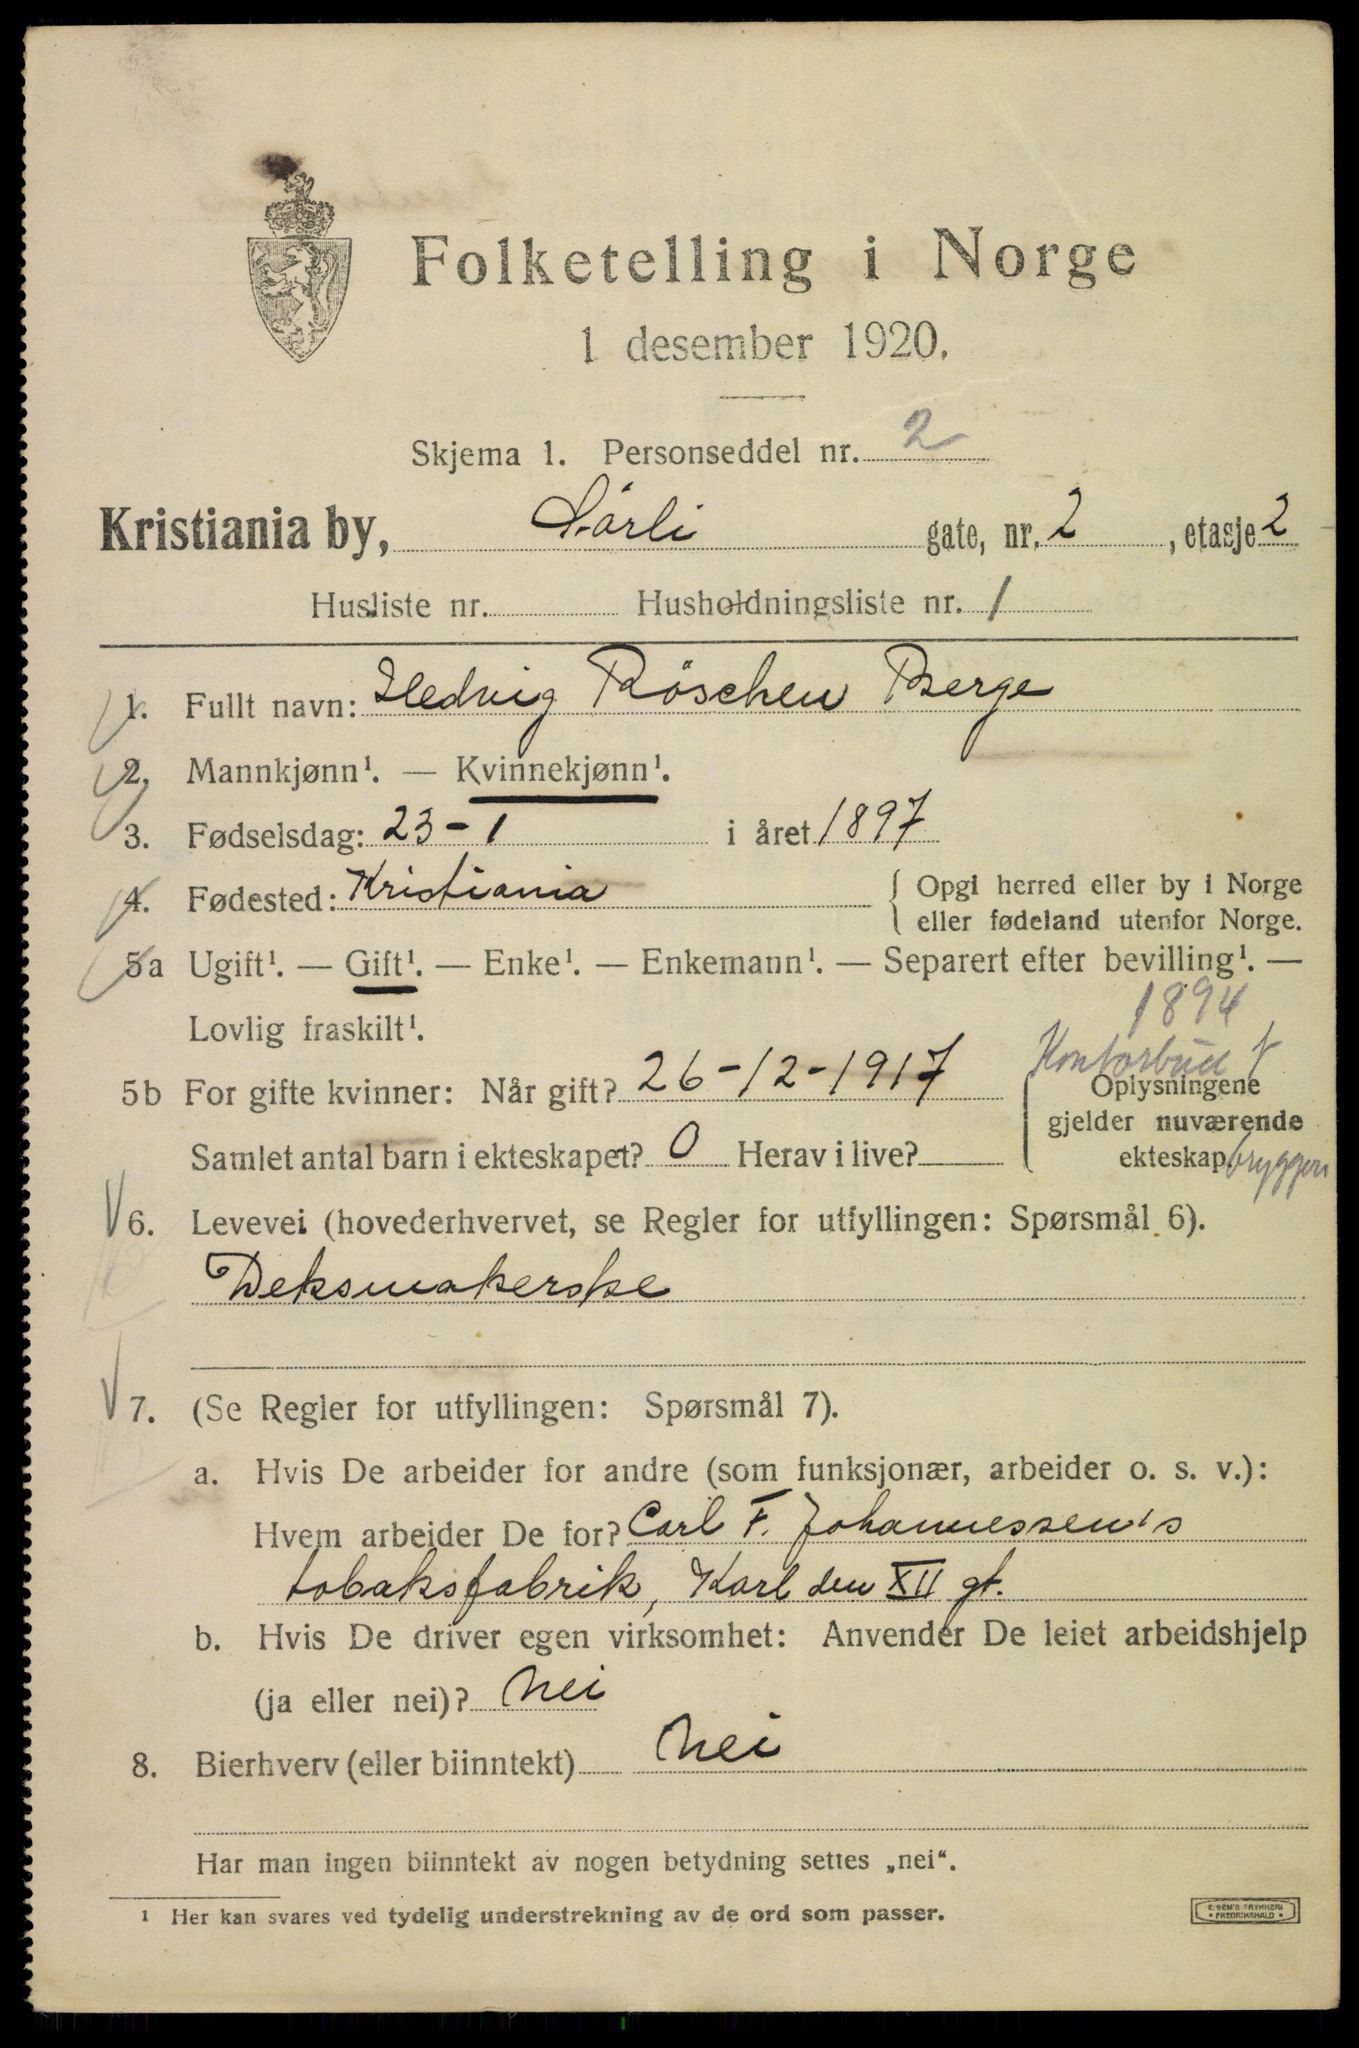 Folketelling i Norge
1 desember 1920.
Skjema 1. Personseddel nr. 2
Kristiania by, Sörli gate, nr. 2, etasje 2
Husliste nr. Husholdningsliste nr. 1
1. Fullt navn: Hedvig Röschen Berge
2. Mannkjønn¹. — Kvinnekjønn¹.
3. Fødselsdag: 23-1 i året 1897
4. Fødested: Kristiania { Opgi herred eller by i Norge
eller fødeland utenfor Norge.
5a Ugift¹. — Gift¹. — Enke¹. — Enkemann¹. — Separert efter bevilling¹. —
Lovlig fraskilt¹.
1894
Kontorbud
5b For gifte kvinner: Når gift? 26-12-1917 { Oplysningene
gjelder nuværende
Samlet antal barn i ekteskapet? 0 Herav i live? ekteskap. bryggeri
6. Levevei (hovederhvervet, se Regler for utfyllingen: Spørsmål 6).
Deksmakerske
7. (Se Regler for utfyllingen: Spørsmål 7).
a. Hvis De arbeider for andre (som funksjonær, arbeider o. s. v.):
Hvem arbeider De for? Carl F. Johannessen's
tobaksfabrik, Karl den XII gt.
b. Hvis De driver egen virksomhet: Anvender De leiet arbeidshjelp
(ja eller nei)? Nei
8. Bierhverv (eller biinntekt) Nei
Har man ingen biinntekt av nogen betydning settes „nei“.
¹ Her kan svares ved tydelig understrekning av de ord som passer.
E. SEM'S TRYKKERI
• FREDRIKSHALD •